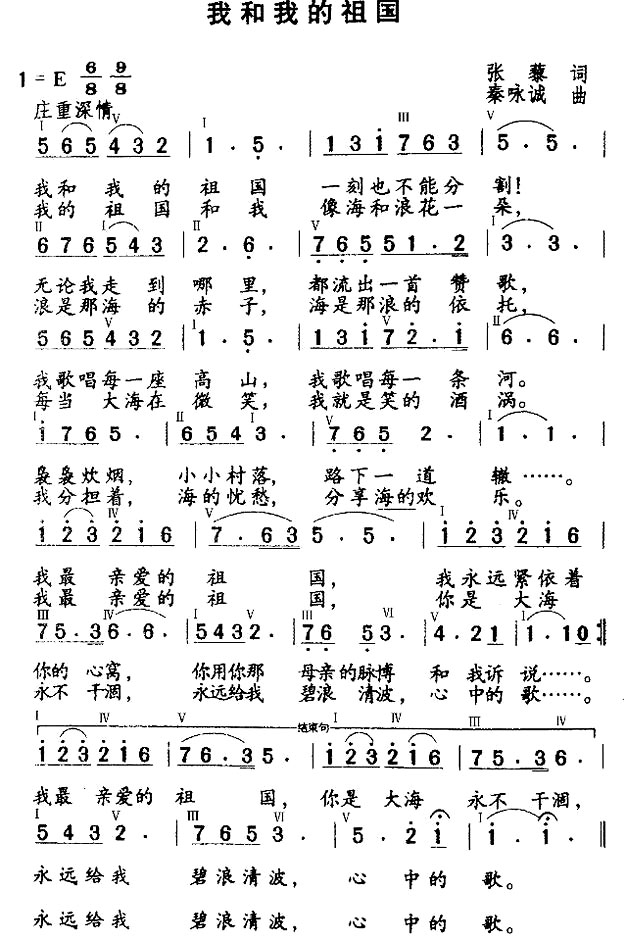 我和我的祖国
1=E 6/8 9/8
张藜 词
秦咏诚 曲
庄重深情
I V I III V
5 6 5 4 3 2 | 1 · 5 · | 1 3 1 7 6 3 | 5 · 5 · |
我和我的祖国 一刻也不能分割!
我的祖国和我 像海和浪花一朵,
II I II V I
6 7 6 5 4 3 | 2 · 6 · | 7 6 5 5 1 · 2 | 3 · 3 · |
无论我走到哪里, 都流出一首赞歌,
浪是那海的赤子, 海是那浪的依托,
I V I V II
5 6 5 4 3 2 | 1 · 5 · | 1 3 1 7 2 · 1 | 6 · 6 · |
我歌唱每一座高山, 我歌唱每一条河。
每当大海在微笑, 我就是笑的酒涡。
I II I V I
1 7 6 5 · | 6 5 4 3 · | 7 6 5 2 · | 1 · 1 · |
袅袅炊烟, 小小村落, 路下一道辙……。
我分担着, 海的忧愁, 分享海的欢乐。
I IV V I IV
1 2 3 2 1 6 | 7 · 6 3 5 · 5 · | 1 2 3 2 1 6 |
我最亲爱的祖国, 我永远紧依着
我最亲爱的祖国, 你是大海
III IV V III VI V I
7 5 · 3 6 · 6 · | 5 4 3 2 · | 7 6 5 3 · | 4 · 2 1 | 1 · 1 0 :||
你的心窝, 你用你那母亲的脉博和我诉说……。
永不干涸, 永远给我碧浪清波, 心中的歌……。
I IV V 结束句 I IV III IV
1 2 3 2 1 6 | 7 6 · 3 5 · | 1 2 3 2 1 6 | 7 5 · 3 6 · |
我最亲爱的祖国, 你是大海永不干涸,
I V III VI V I
5 4 3 2 · | 7 6 5 3 · | 5 · 2 1 | 1 · 1 · ||
永远给我碧浪清波, 心中的歌。
永远给我碧浪清波, 心中的歌。